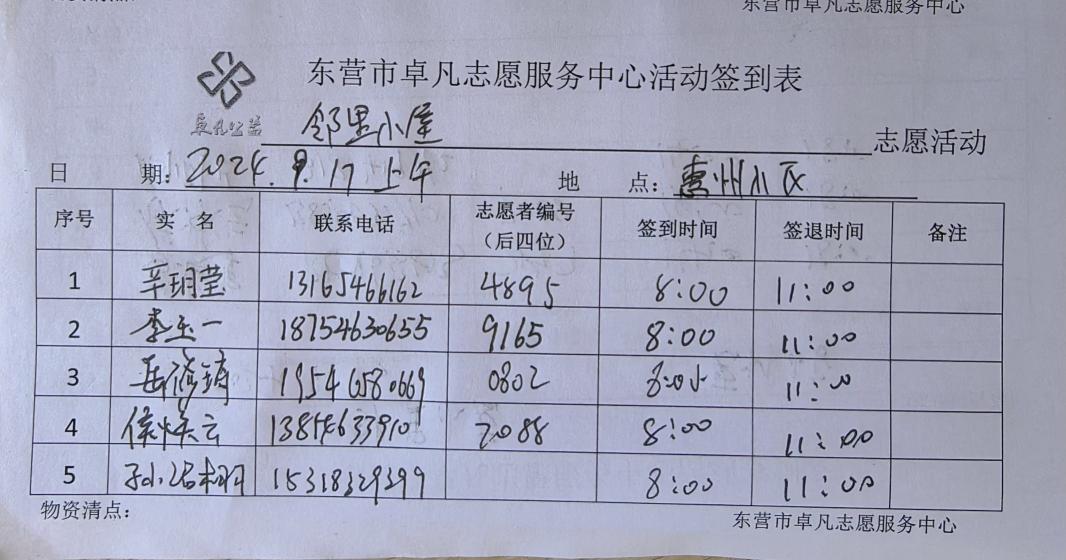 东营市卓凡志愿服务中心
东营市卓凡志愿服务中心活动签到表
卓凡公益
邻里小屋 志愿活动
日 期: 2024.9.17 上午 地 点: 惠州小区
序号 实 名 联系电话 志愿者编号（后四位） 签到时间 签退时间 备注
1 辛玥莹 13165466162 4895 8:00 11:00
2 李玉一 18754630655 9165 8:00 11:00
3 0802 11:00
4 侯 云 2088 8:00 11:00
5 15318329399 8:00 11:00
物资清点:
东营市卓凡志愿服务中心